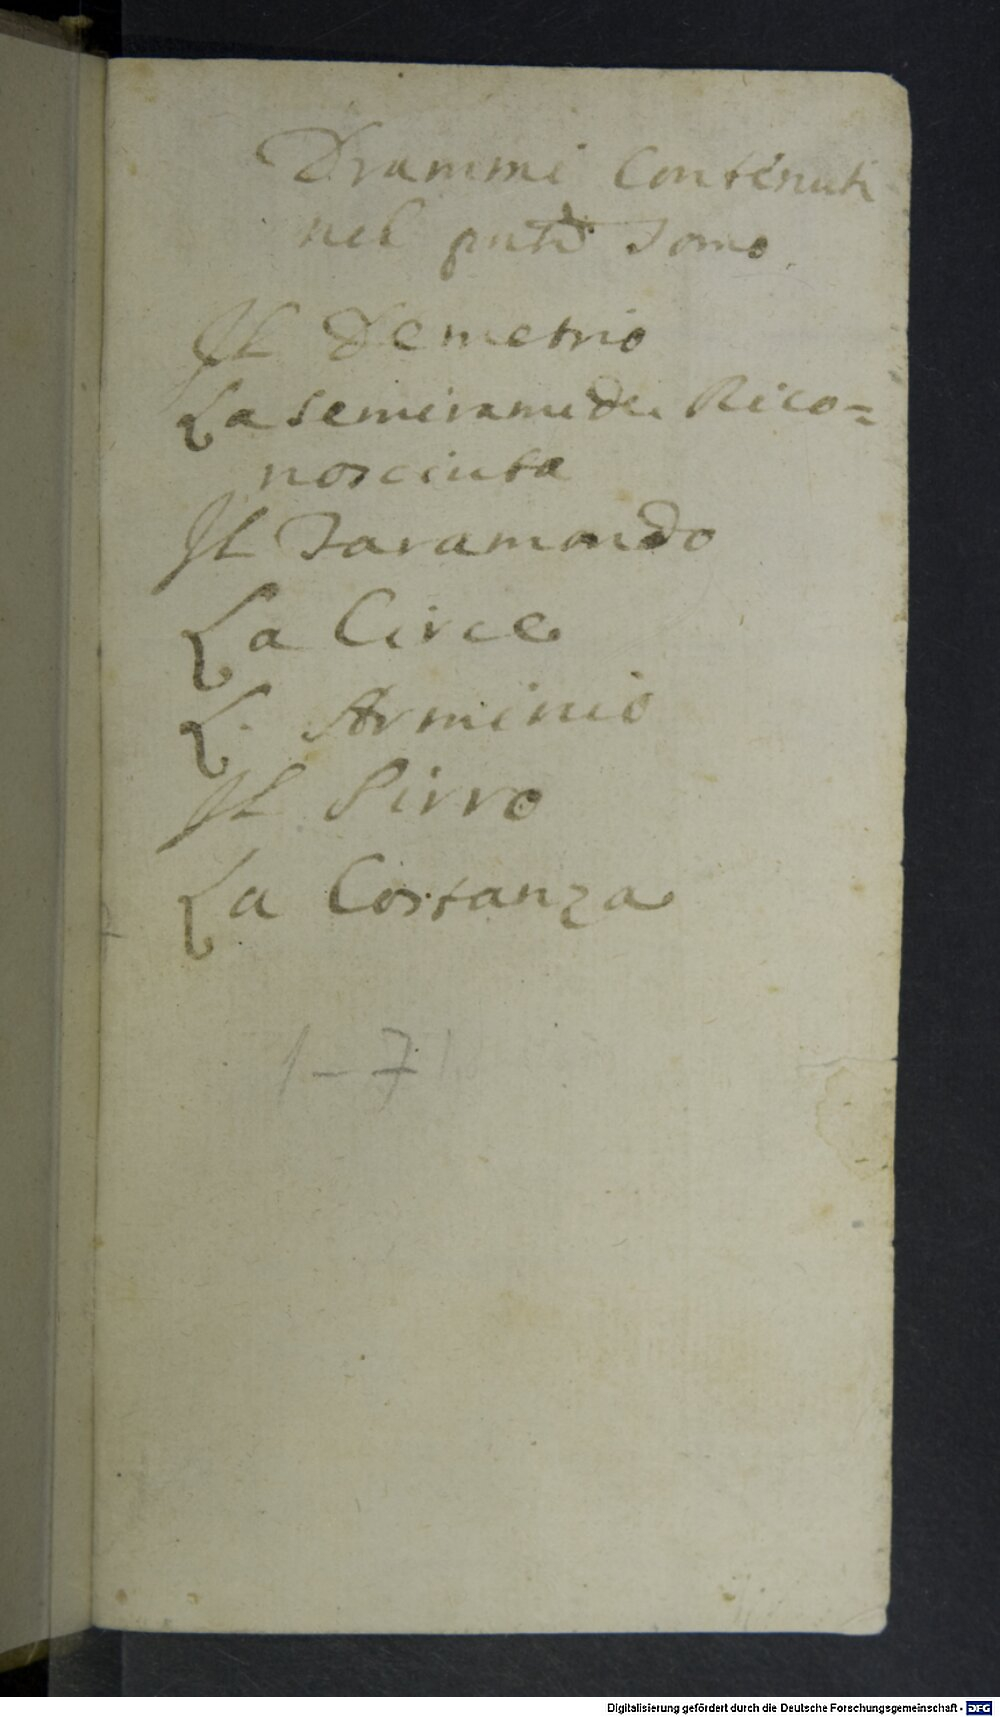 Drammi Contenuti
nel pnte Tomo.
Il Demetrio
La Semiramide Rico=
nosciuta
Il Faramondo
La Circe
L. Arminio
Il Pirro
La Costanza
1-7
Digitalisierung gefördert durch die Deutsche Forschungsgemeinschaft - DFG